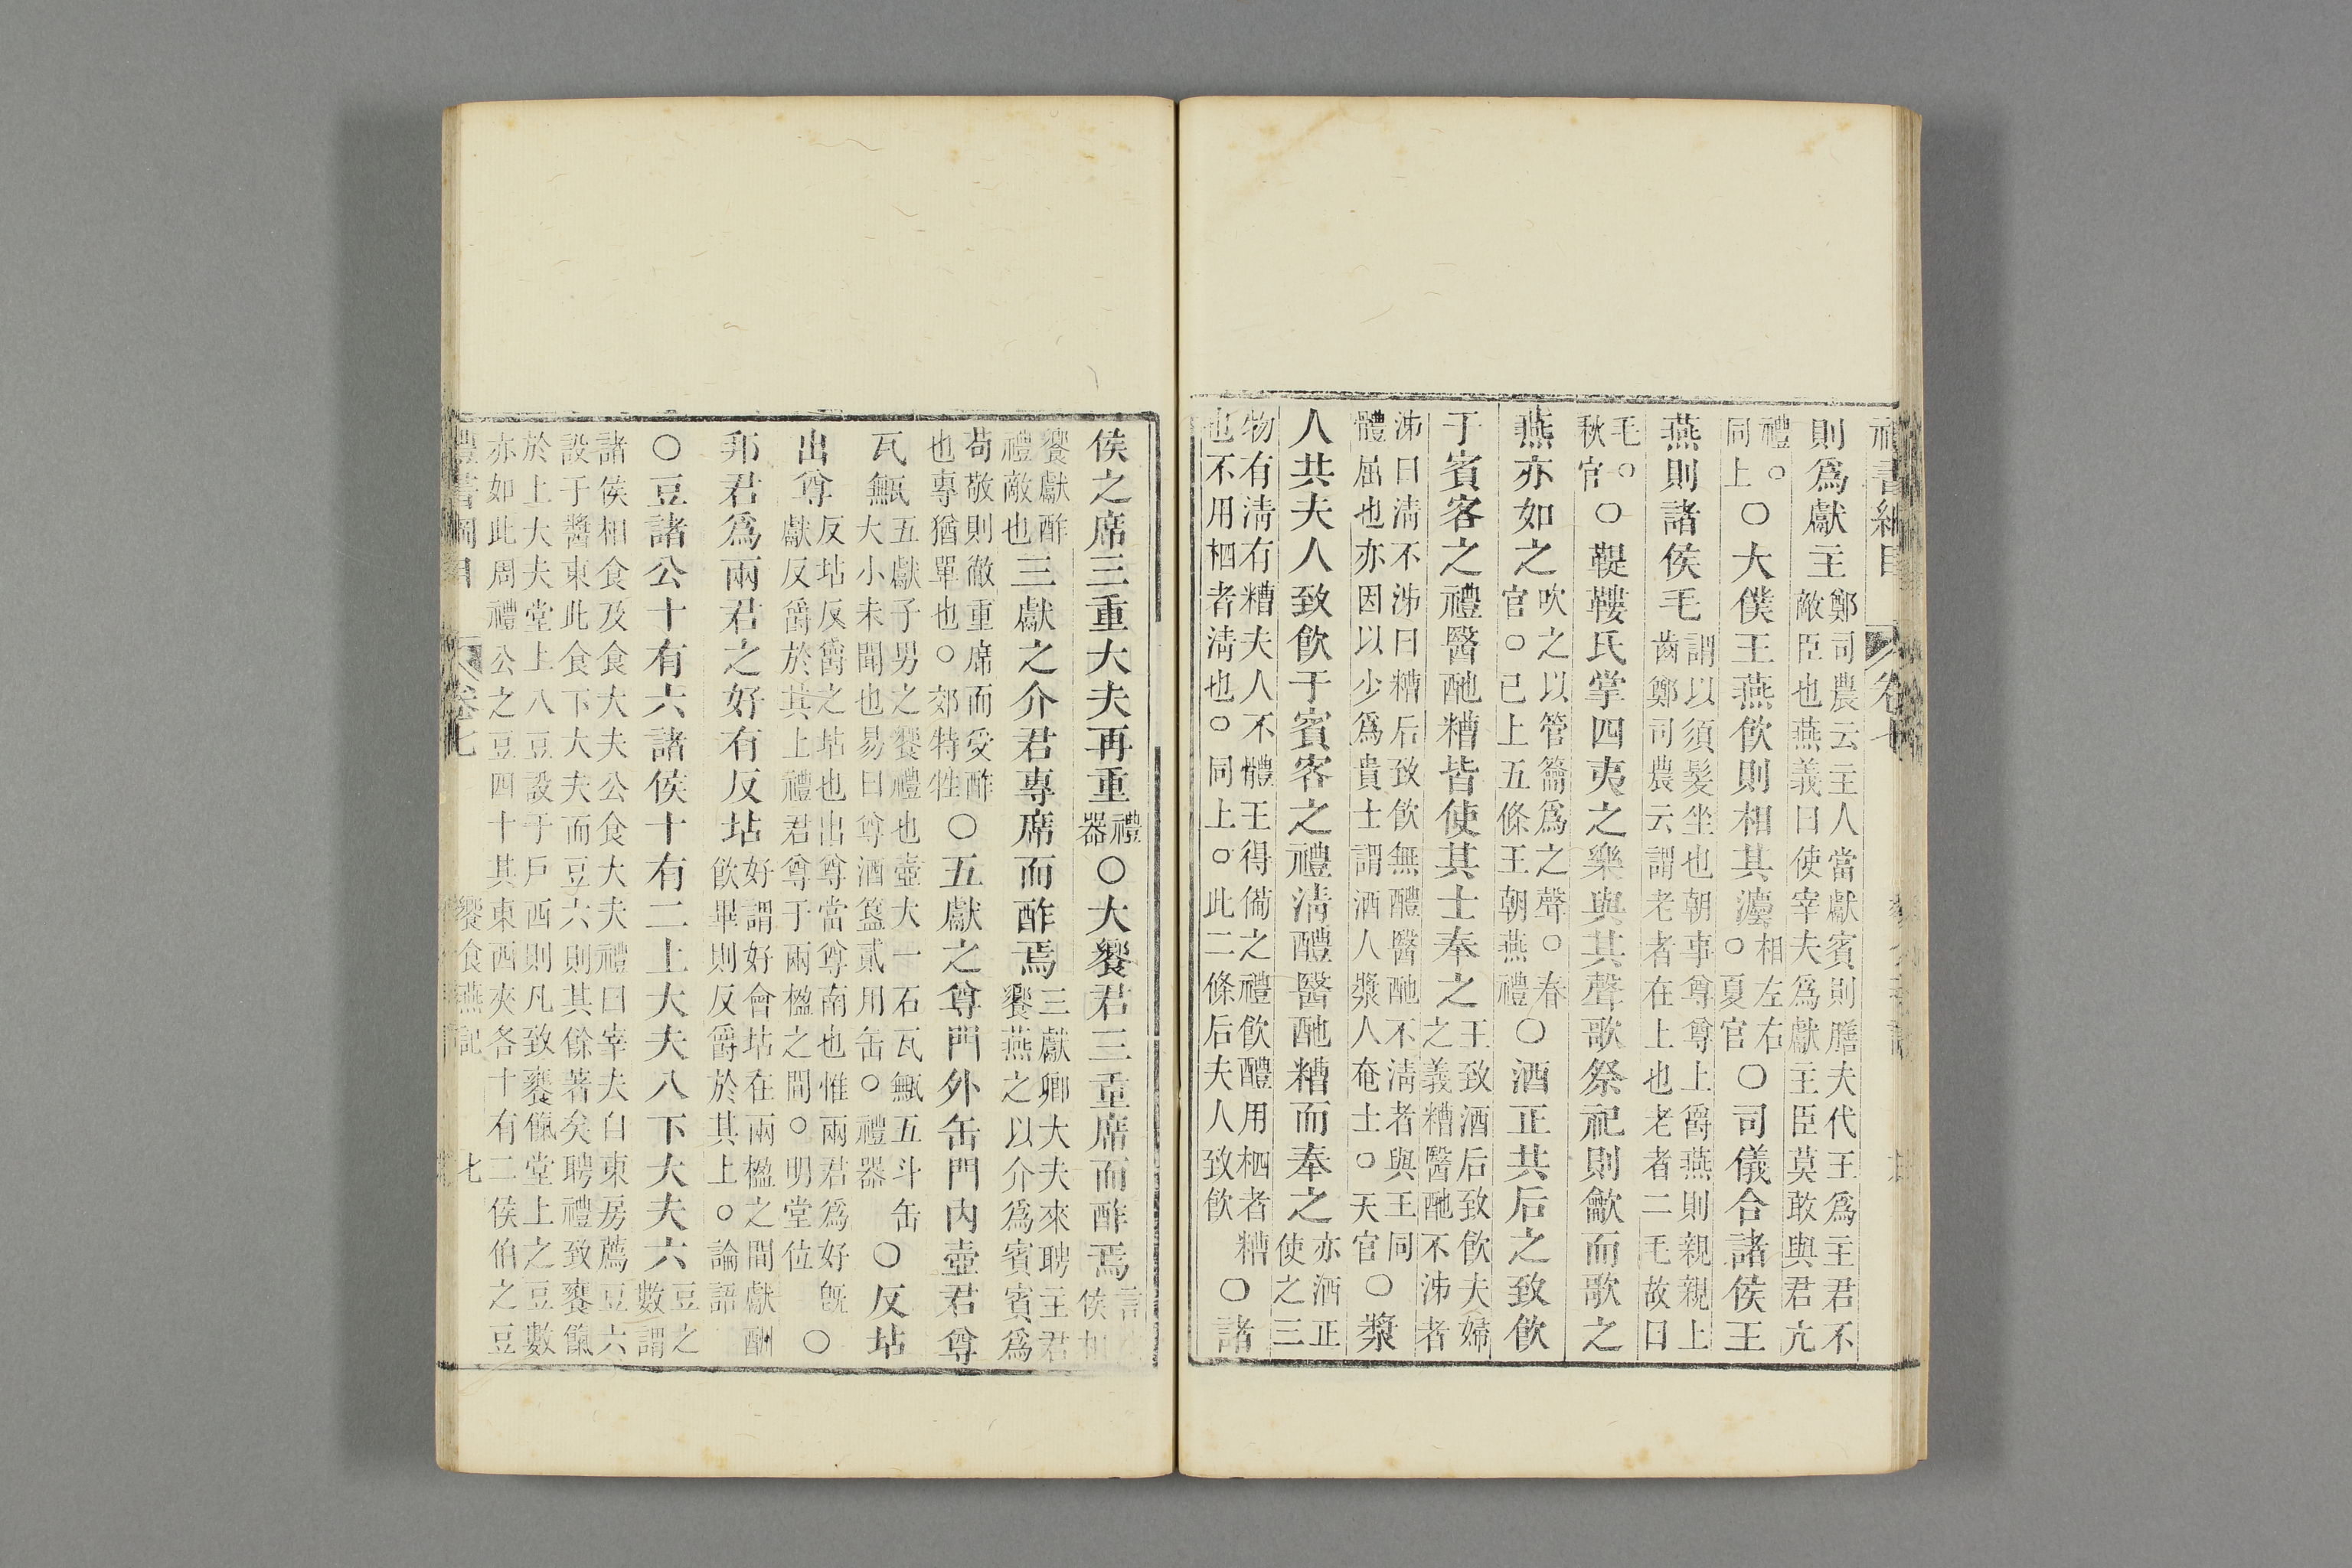 禮書綱目 卷七
則爲獻主鄭司農云主人當獻賓則膳夫代王爲主君不敵臣也燕義曰使宰夫爲獻主臣莫敢與君亢
禮○同上○大僕王燕飲則相其灋相左右○夏官○司儀合諸侯王
燕則諸侯毛謂以須髮坐也朝事尊尊上爵燕則親親上齒鄭司農云謂老者在上也老者二毛故曰
毛○秋官○鞮鞻氏掌四夷之樂與其聲歌祭祀則龡而歌之
燕亦如之吹之以管籥爲之聲○春官○已上五條王朝燕禮○酒正共后之致飲
于賓客之禮醫酏糟皆使其士奉之王致酒后致飲夫婦之義糟醫酏不泲者
泲曰淸不泲曰糟后致飲無醴醫酏不淸者與王同體屈也亦因以少爲貴士謂酒人漿人奄士○天官○漿
人共夫人致飲于賓客之禮淸醴醫酏糟而奉之亦酒正使之三
物有淸有糟夫人不體王得備之禮飲醴用柶者糟也不用柶者淸也○同上○此二條后夫人致飲○諸
侯之席三重大夫再重禮器○大饗君三重席而酢焉言侯相
饗獻酢禮敵也三獻之介君專席而酢焉三獻卿大夫來聘主君饗燕之以介爲賓賓爲
苟敬則徹重席而受酢也專猶單也○郊特牲○五獻之尊門外缶門內壺君尊
瓦甒五獻子男之饗禮也壺大一石瓦甒五斗缶大小未聞也易曰尊酒簋貳用缶○禮器○反坫
出尊反坫反爵之坫也出尊當尊南也惟兩君爲好旣獻反爵於其上禮君尊于兩楹之間○明堂位○
邦君爲兩君之好有反坫好謂好會坫在兩楹之間獻酬飲畢則反爵於其上○論語
○豆諸公十有六諸侯十有二上大夫八下大夫六豆之數謂
諸侯相食及食大夫公食大夫禮曰宰夫自東房薦豆六設于醬東此食下大夫而豆六則其餘著矣聘禮致饔餼
於上大夫堂上八豆設于戶西則凡致饔餼堂上之豆數亦如此周禮公之豆四十其東西夾各十有二侯伯之豆
禮書綱目 卷七 饗食燕記 七